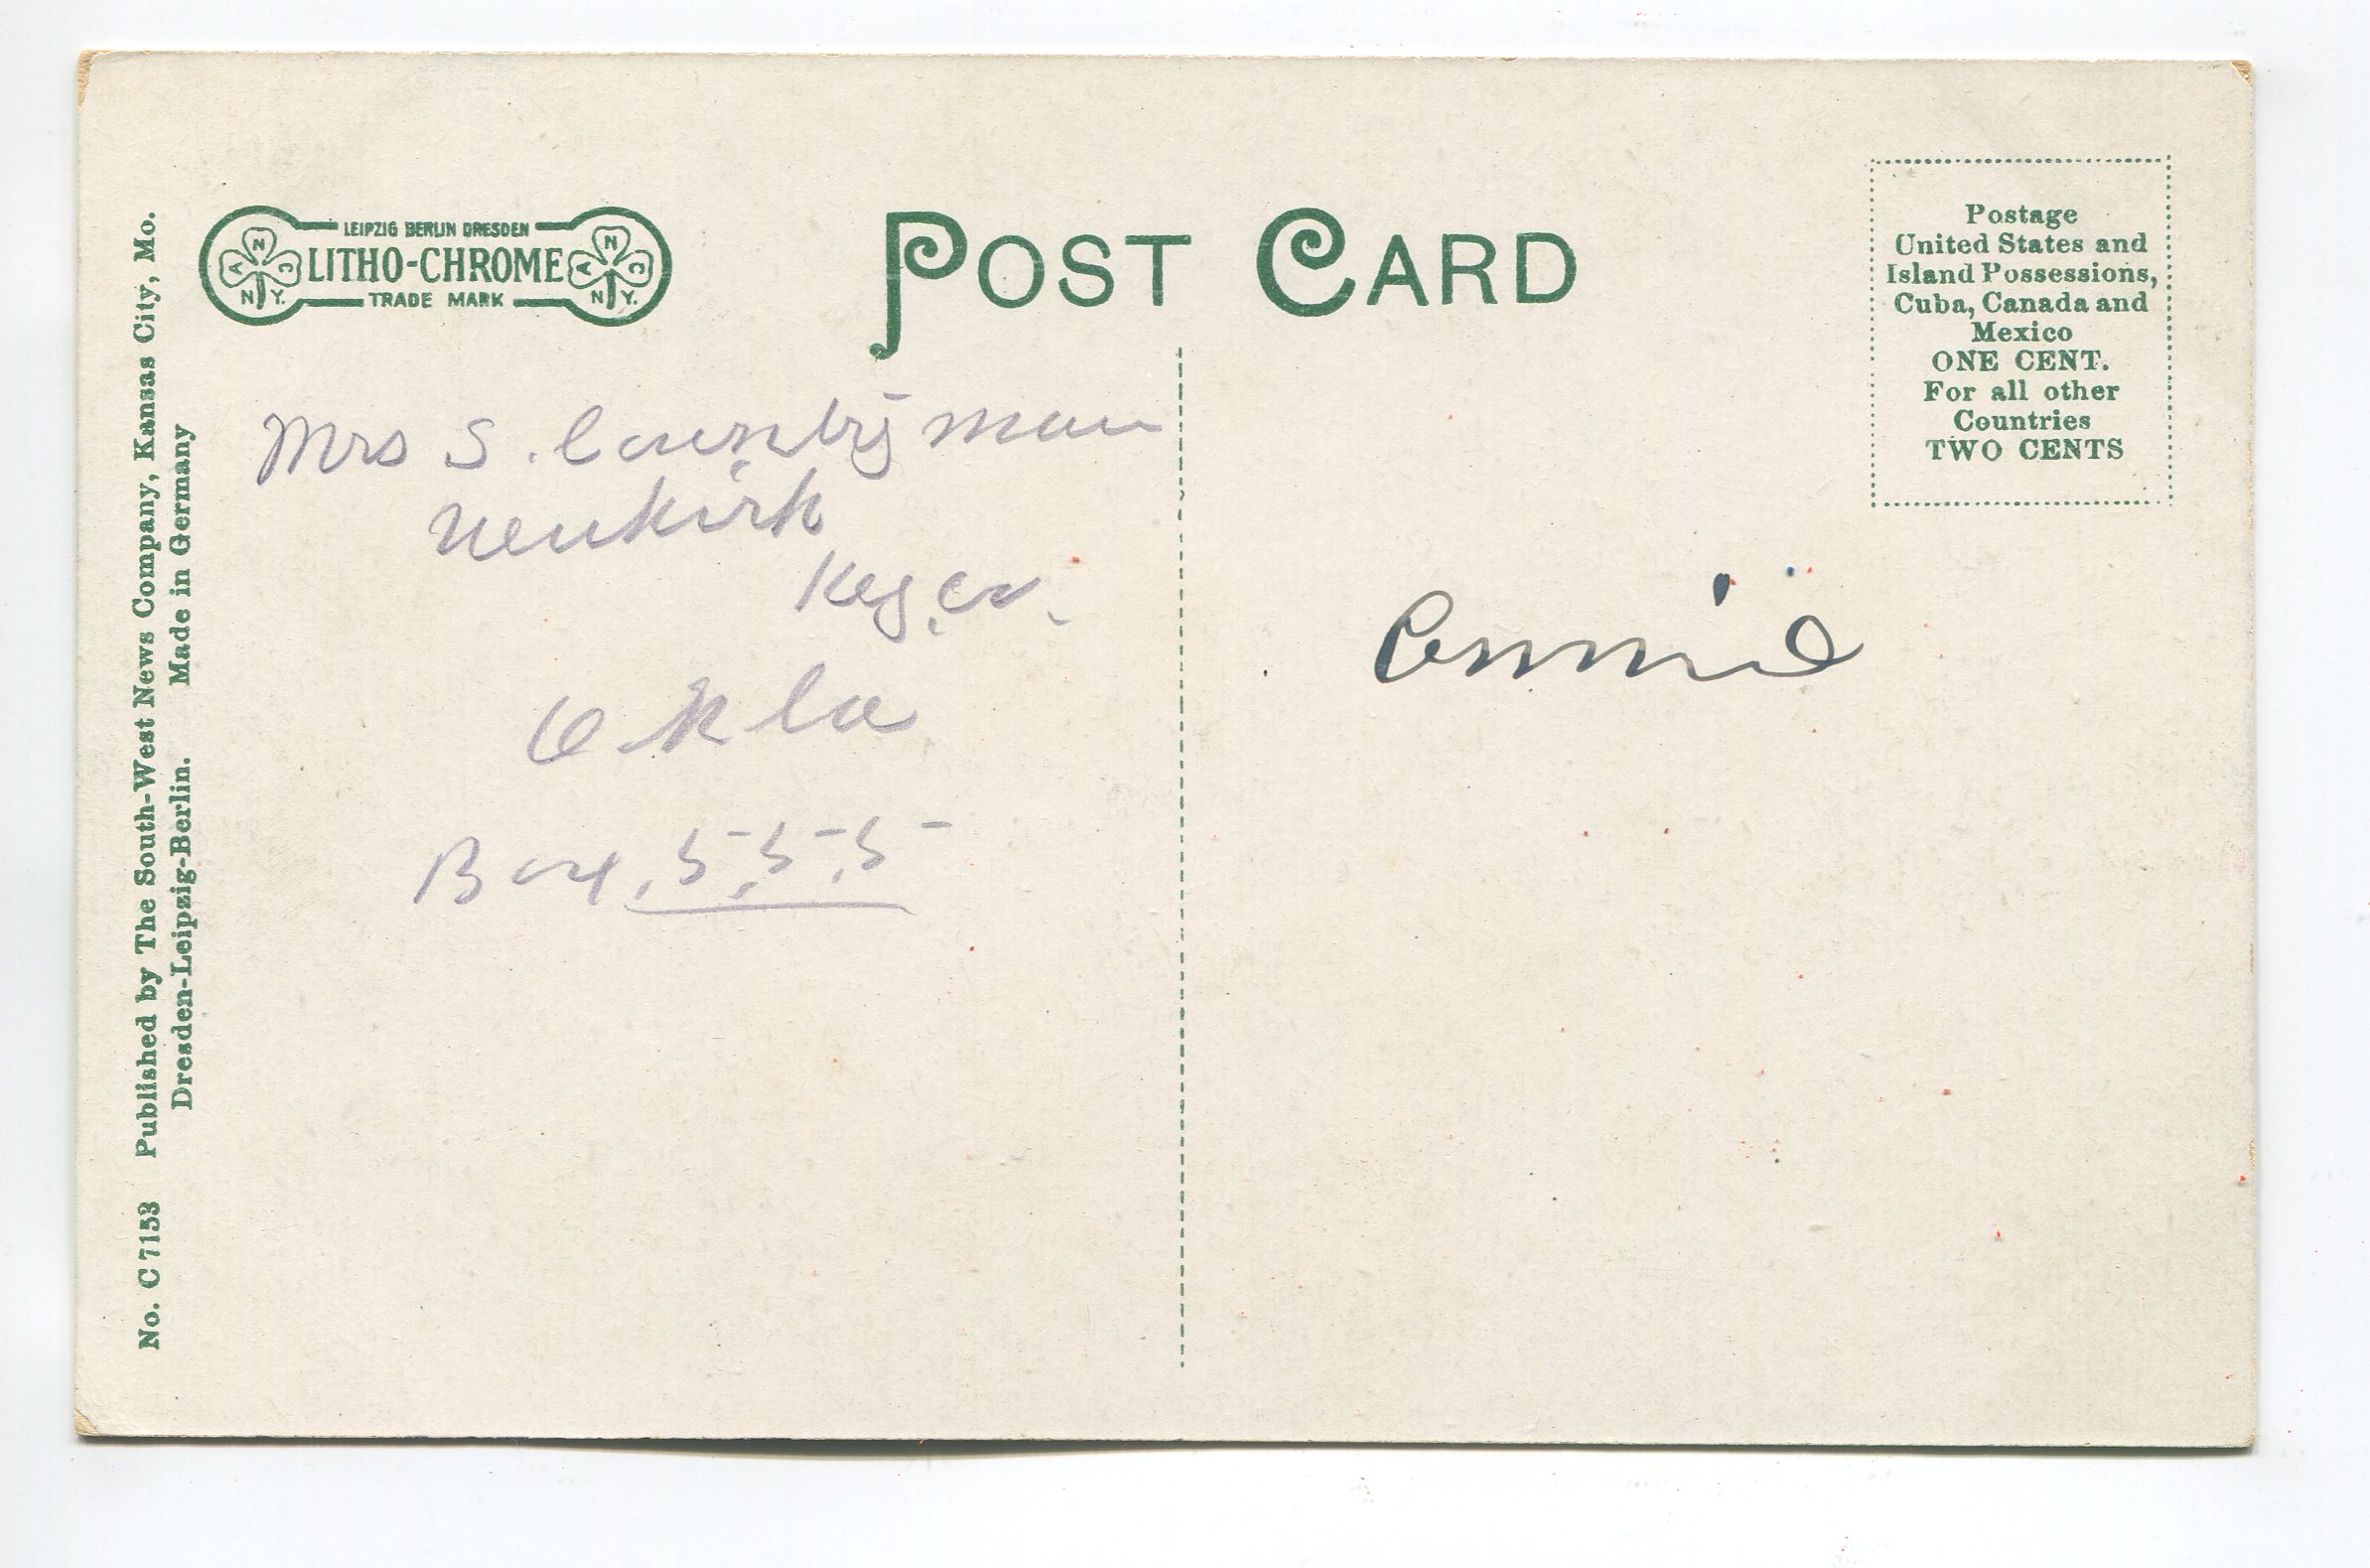 No. C 7153 Published by The South-West News Company, Kansas City, Mo.
Dresden-Leipzig-Berlin. Made in Germany
LEIPZIG BERLIN DRESDEN
LITHO-CHROME
TRADE MARK
A N C
N Y.
A N C
N Y.
POST CARD
Postage
United States and
Island Possessions,
Cuba, Canada and
Mexico
ONE CENT.
For all other
Countries
TWO CENTS
Mrs S. Countryman
Newkirk
Key, Co.
Okla
Box, 5,5,5
Annie